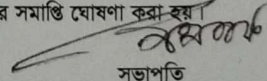 র সমাপ্তি ঘোষণা করা হয়।
সভাপতি